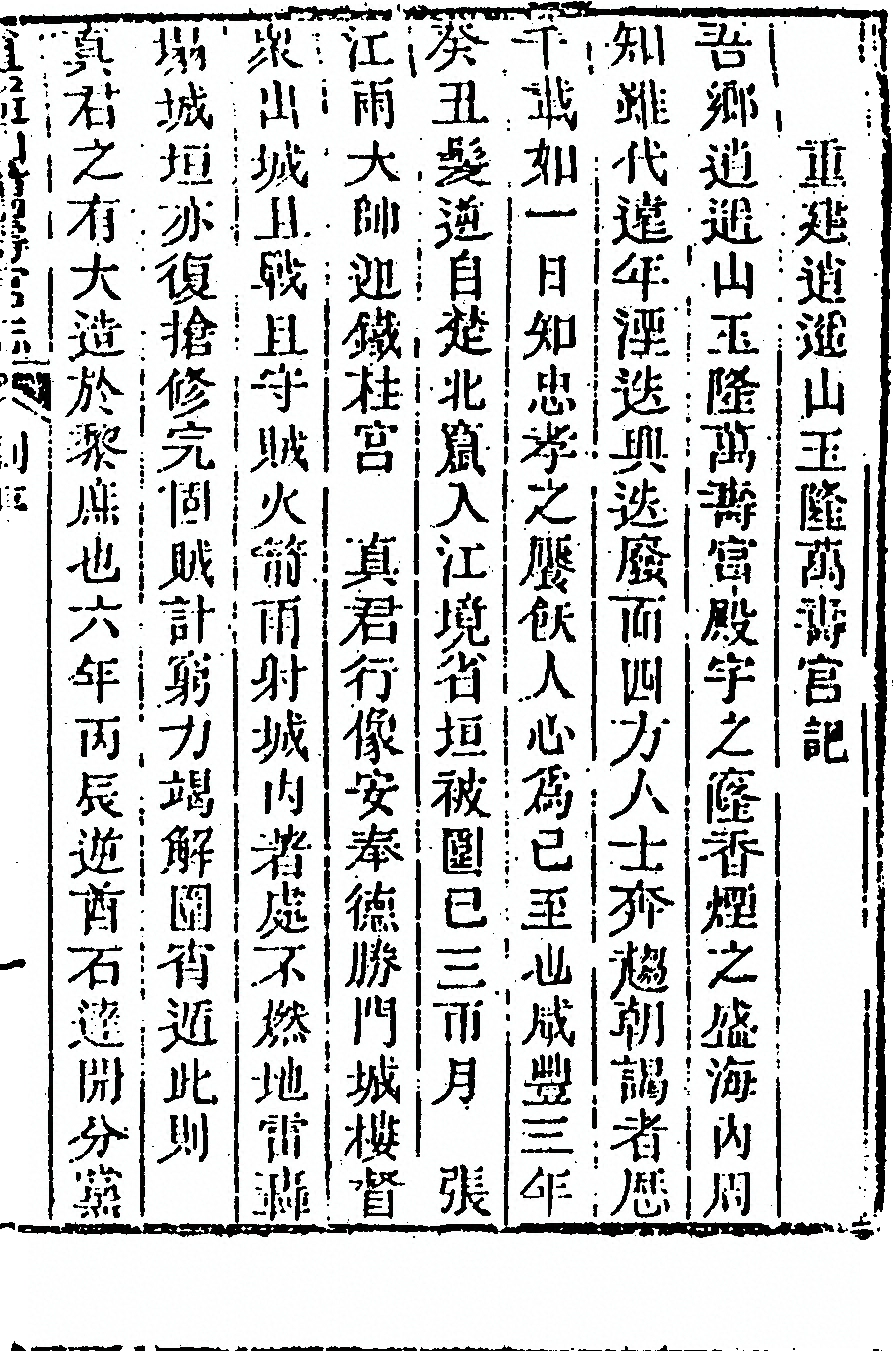 重建逍遥山玉隆萬壽宮記
吾鄉逍遥山玉隆萬壽宮殿宇之隆香煙之盛海内周
知雖代遠年湮迭興迭廢而四方人士奔趨朝謁者歷
千載如一日知忠孝之饜飫人心為已至也咸豐三年
癸丑髮逆自楚北竄入江境省垣被圍已三帀月　張
江兩大帥迎鐵柱宮　真君行像安奉德勝門城樓督
衆出城且戰且守賊火箭雨射城内著處不燃地雷轟
塌城垣亦復搶修完固賊計窮力竭解圍宵遁此則
真君之有大造於黎庶也六年丙辰逆酋石達開分黨